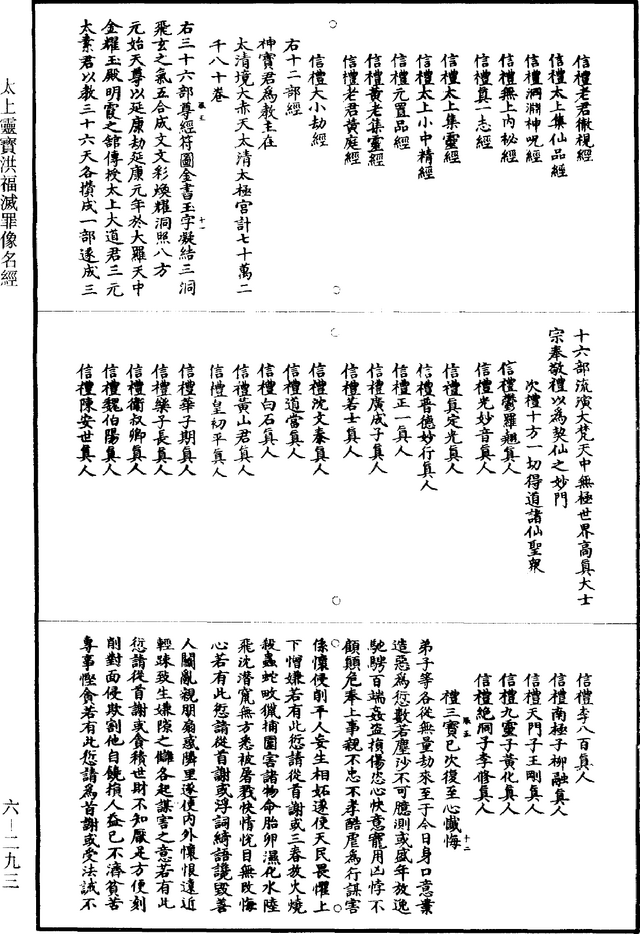 信禮老君徹視經
信禮太上集仙品經
信禮洞淵神呪經
信禮無上內祕經
信禮真一志經
信禮太上集靈經
信禮太上小中精經
信禮元置品經
信禮黃老集靈經
信禮老君黃庭經
信禮大小劫經
右十二部經
神寶君為教主在
太清境大赤天太清太極宮計七十萬二
千八十卷
右三十六部尊經符圖金書玉字凝結三洞
飛玄之氣五合成文文彩煥耀洞照八方
元始天尊以延康劫延康元年於大羅天中
金耀玉殿明霞之舘傳授太上大道君三元
太素君以教三十六天各攢成一部遂成三
十六部流演大梵天中無極世界高真大士
宗奉敬禮以為契仙之妙門
次禮十方一切得道諸仙聖衆
信禮鬱羅翹真人
信禮光妙音真人
信禮真定光真人
信禮普德妙行真人
信禮正一真人
信禮廣成子真人
信禮若士真人
信禮沈文泰真人
信禮道當真人
信禮白石真人
信禮黃山君真人
信禮皇初平真人
信禮華子期真人
信禮樂子長真人
信禮衛叔卿真人
信禮魏伯陽真人
信禮陳安世真人
信禮李八百真人
信禮南極子柳融真人
信禮天門子王剛真人
信禮九靈子黃化真人
信禮絕洞子李修真人
禮三寶已次復至心懺悔
十二
弟子等各從無量劫來至于今日身口意業
造惡為愆數若塵沙不可臆測或盛年放逸
馳騁百端姦盜損傷恣心快意寵用凶悖不
顧顛危奉上事親不忠不孝酷虐為行謀害
係懷侵削平人妄生相妬遂使天民畏懼上
下憎嫌若有此愆請從首謝或三春放火燒
殺蟲蛇畋獵捕圍害諸物命胎卵濕化水陸
飛沈潛窺無方悉被屠戮快情悅目無改悔
心若有此愆請從首謝或浮詞綺語讒毀善
人鬭亂親朋扇惑隣里遂使內外懷恨遠近
輕疎致生嫌隙之讎各起謀害之意若有此
愆請從首謝或貪積世財不知厭足方便刻
削對面侵欺割他自饒損人益己不濟貧苦
專事慳貪若有此愆請為首謝或受法誡不
太上靈寶洪福滅罪像名經
六－二九三